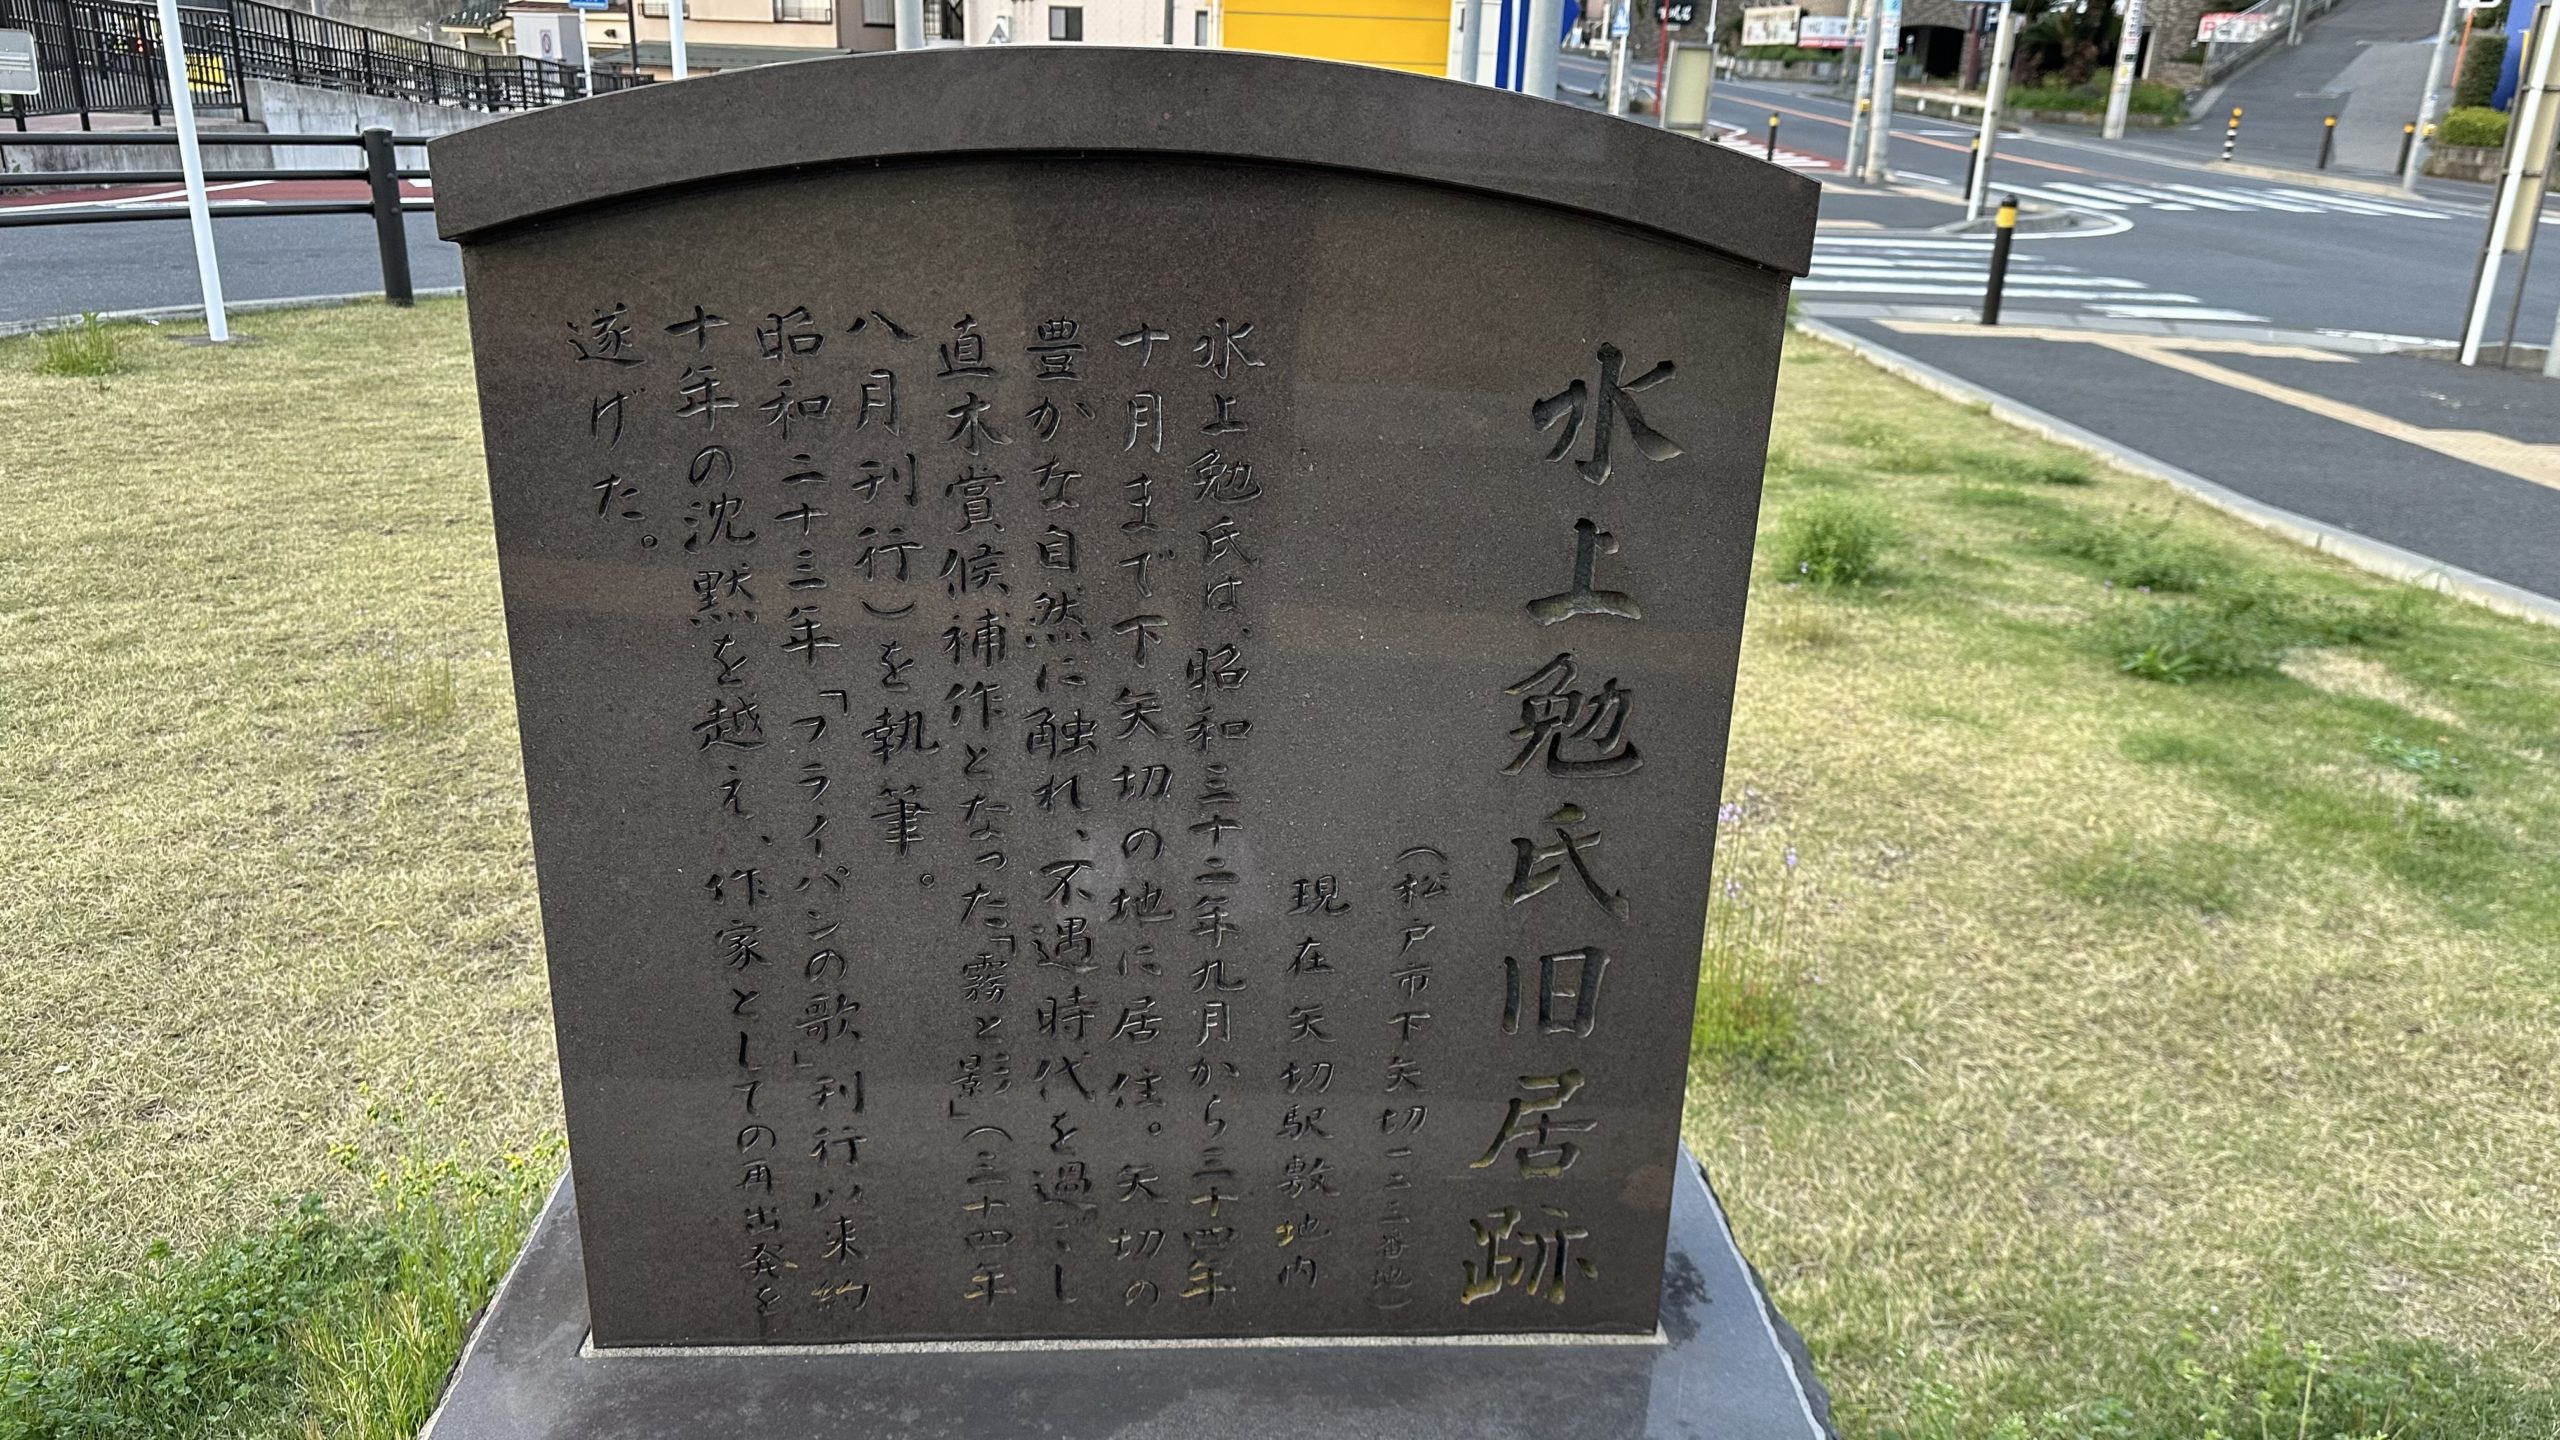 水上勉氏旧居跡
（松戸市下矢切一二三番地）
現在矢切駅敷地内
水上勉氏は、昭和三十二年九月から三十四年
十月まで下矢切の地に居住。矢切の
豊かな自然に触れ、不遇時代を過ごし
直木賞候補作となった「霧と影」（三十四年
八月刊行）を執筆。
昭和二十三年「フライパンの歌」刊行以来約
十年の沈黙を越え、作家としての再出発を
遂げた。